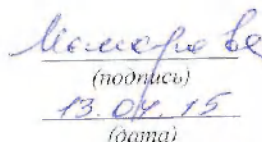 (подпись)
13.04.15
(дата)